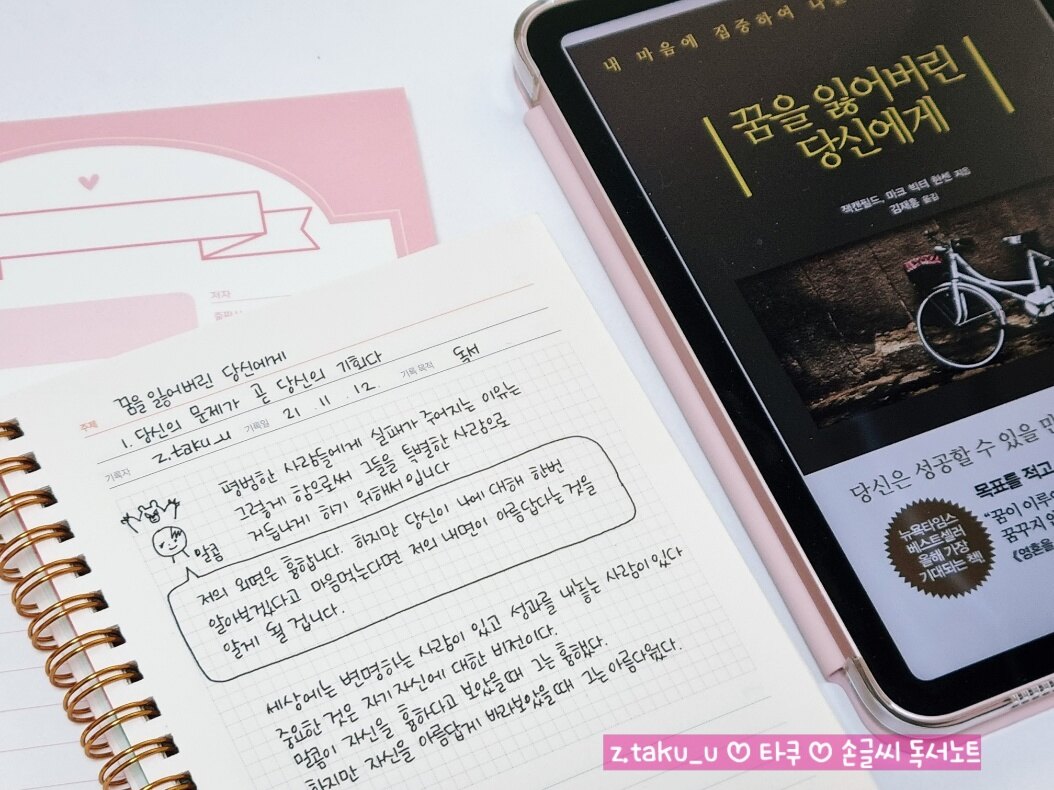 저자
주제 꿈을 잃어버린 당신에게
1. 당신의 문제가 곧 당신의 기회다
기록자 z.taku_u 기록일 21. 11. 12. 기록 목적 독서
평범한 사람들에게 실패가 주어지는 이유는
그렇게 함으로써 그들을 특별한 사람으로
거듭나게 하기 위해서입니다
말콤
저의 외면은 흉합니다. 하지만 당신이 나에 대해 한번
알아보겠다고 마음먹는다면 저의 내면이 아름답다는 것을
알게 될 겁니다.
세상에는 변명하는 사람이 있고 성과를 내놓는 사람이 있다
중요한 것은 자기 자신에 대한 비전이다.
말콤이 자신을 흉하다고 보았을때 그는 흉했다.
하지만 자신을 아름답게 바라보았을때 그는 아름다웠다.
내 마음에 집중하여
꿈을 잃어버린
당신에게
잭캔필드, 마크 빅터 한센 지음
김재홍 옮김
당신은 성공할 수 있을 만
목표를 적고
"꿈이 이루
꿈꾸지 않
《영혼을
뉴욕타임스
베스트셀러
올해 가장
기대되는 책
z.taku_u ♡ 타쿠 ♡ 손글씨 독서노트